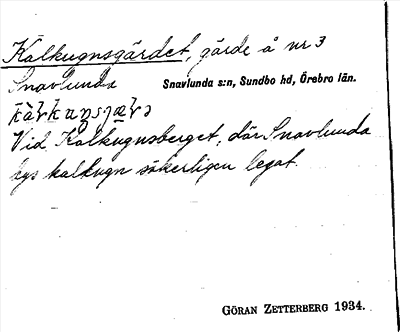 Kalkugnsgärdet, gärde å nr 3
Snavlunda Snavlunda s:n, Sundbo hd, Örebro län.
Vid Kalkugnsberget, där Snavlunda
bys kalkugn säkerligen legat.
GÖRAN ZETTERBERG 1934.